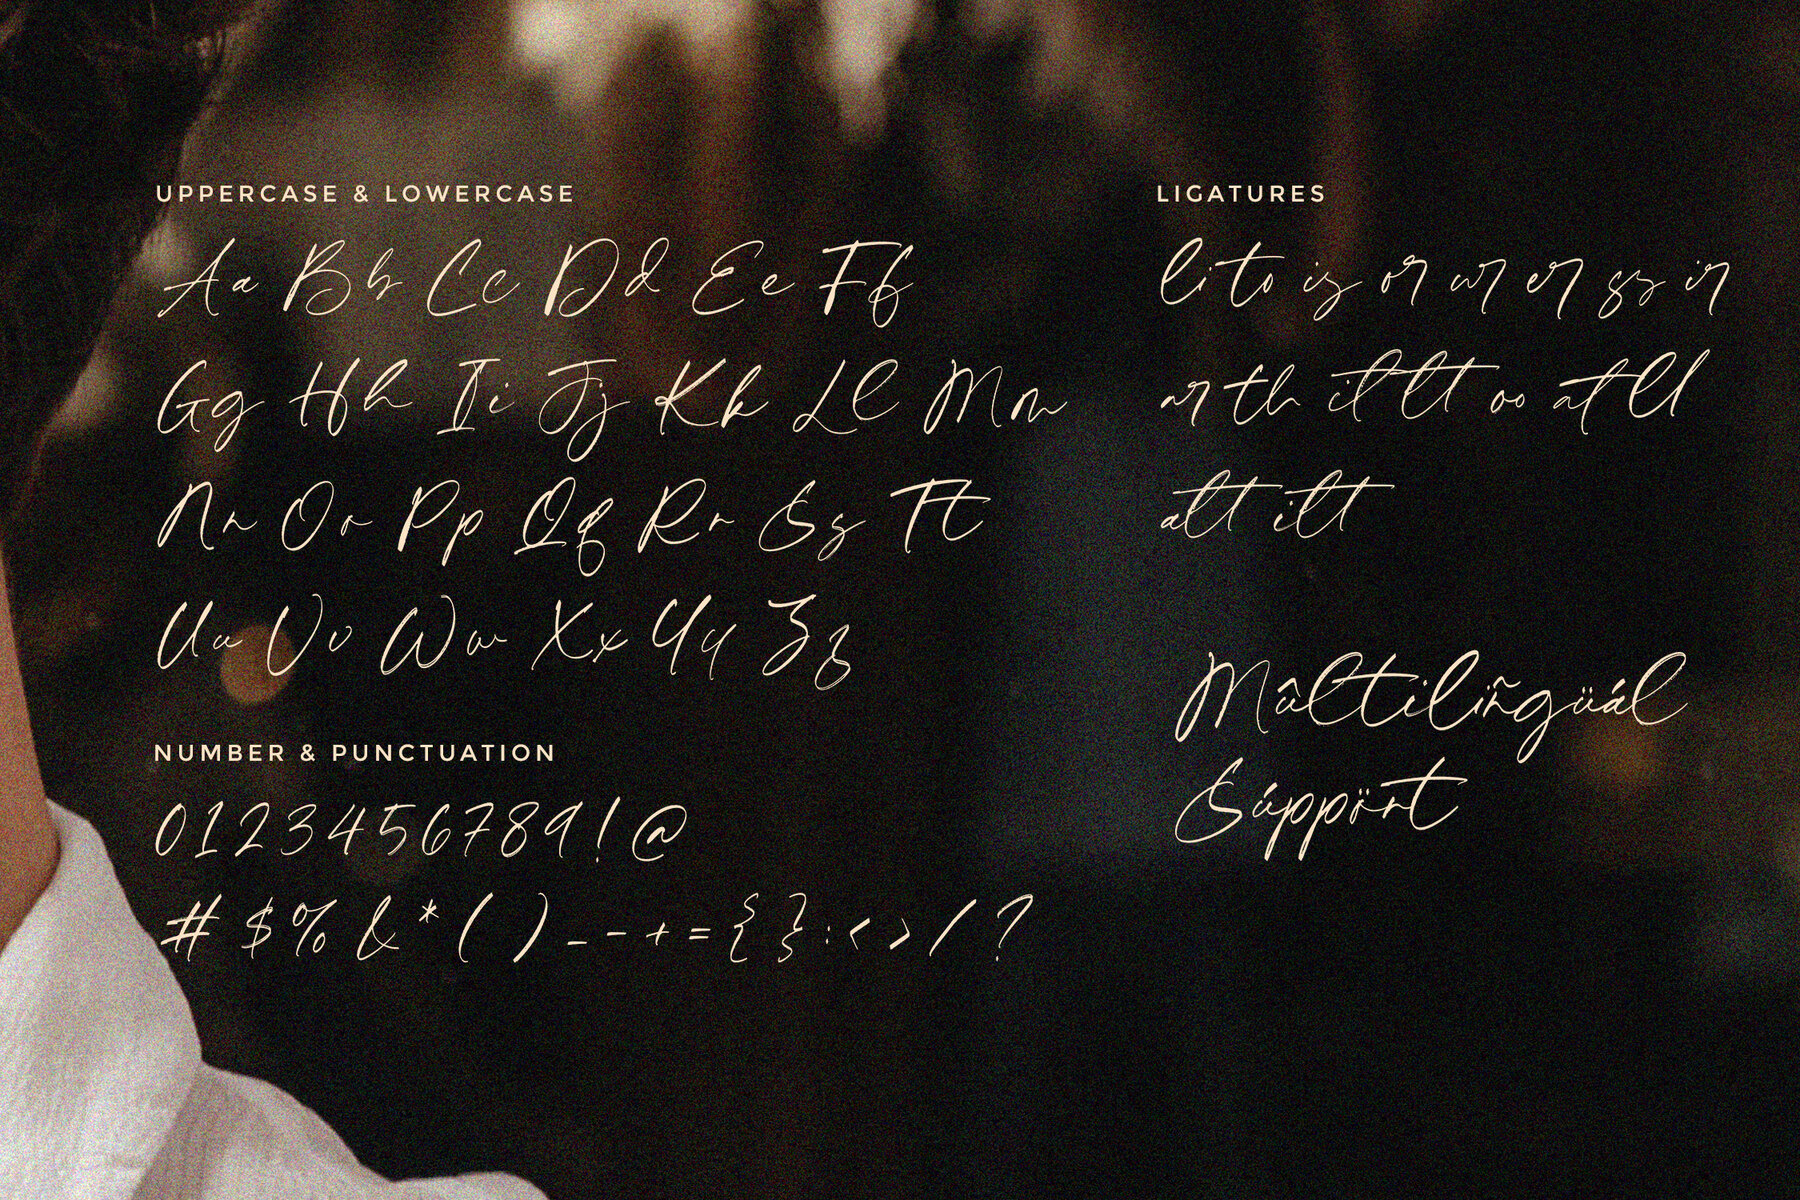 UPPERCASE & LOWERCASE
Aa Bb Cc Dd Ee Ff
Gg Hh Ii Jj Kk Ll Mm
Nn Oo Pp Qq Rr Ss Tt
Uu Vv Ww Xx Yy Zz
NUMBER & PUNCTUATION
0123456789!@
#$%&*()_-+={}:<>/?
LIGATURES
li to is or ur er ss ir
ar th it tt oo at ll
att itt
Mûltilïñgüál
Súppört